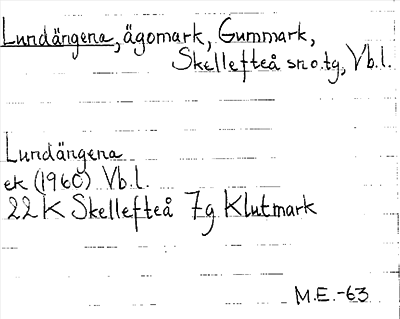 Lundängena, ägomark, Gummark,
Skellefteå sn o. tg, Vb. l.
Lundängena
ek (1960) Vb. l.
22 K Skellefteå 7g Klutmark
M.E. -63